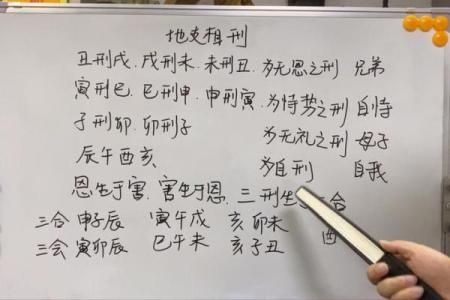 地支相刑
丑刑戌、戌刑未、未刑丑、为无恩之刑 兄弟
寅刑巳、巳刑申、申刑寅、为恃势之刑 自恃
子刑卯、卯刑子 为无礼之刑 母子
辰午酉亥 为自刑 自我
恩生于害、害生于恩、三刑生 合
三合 申子辰 寅午戌 亥卯未
三会 寅卯辰 巳午未 亥子丑 酉